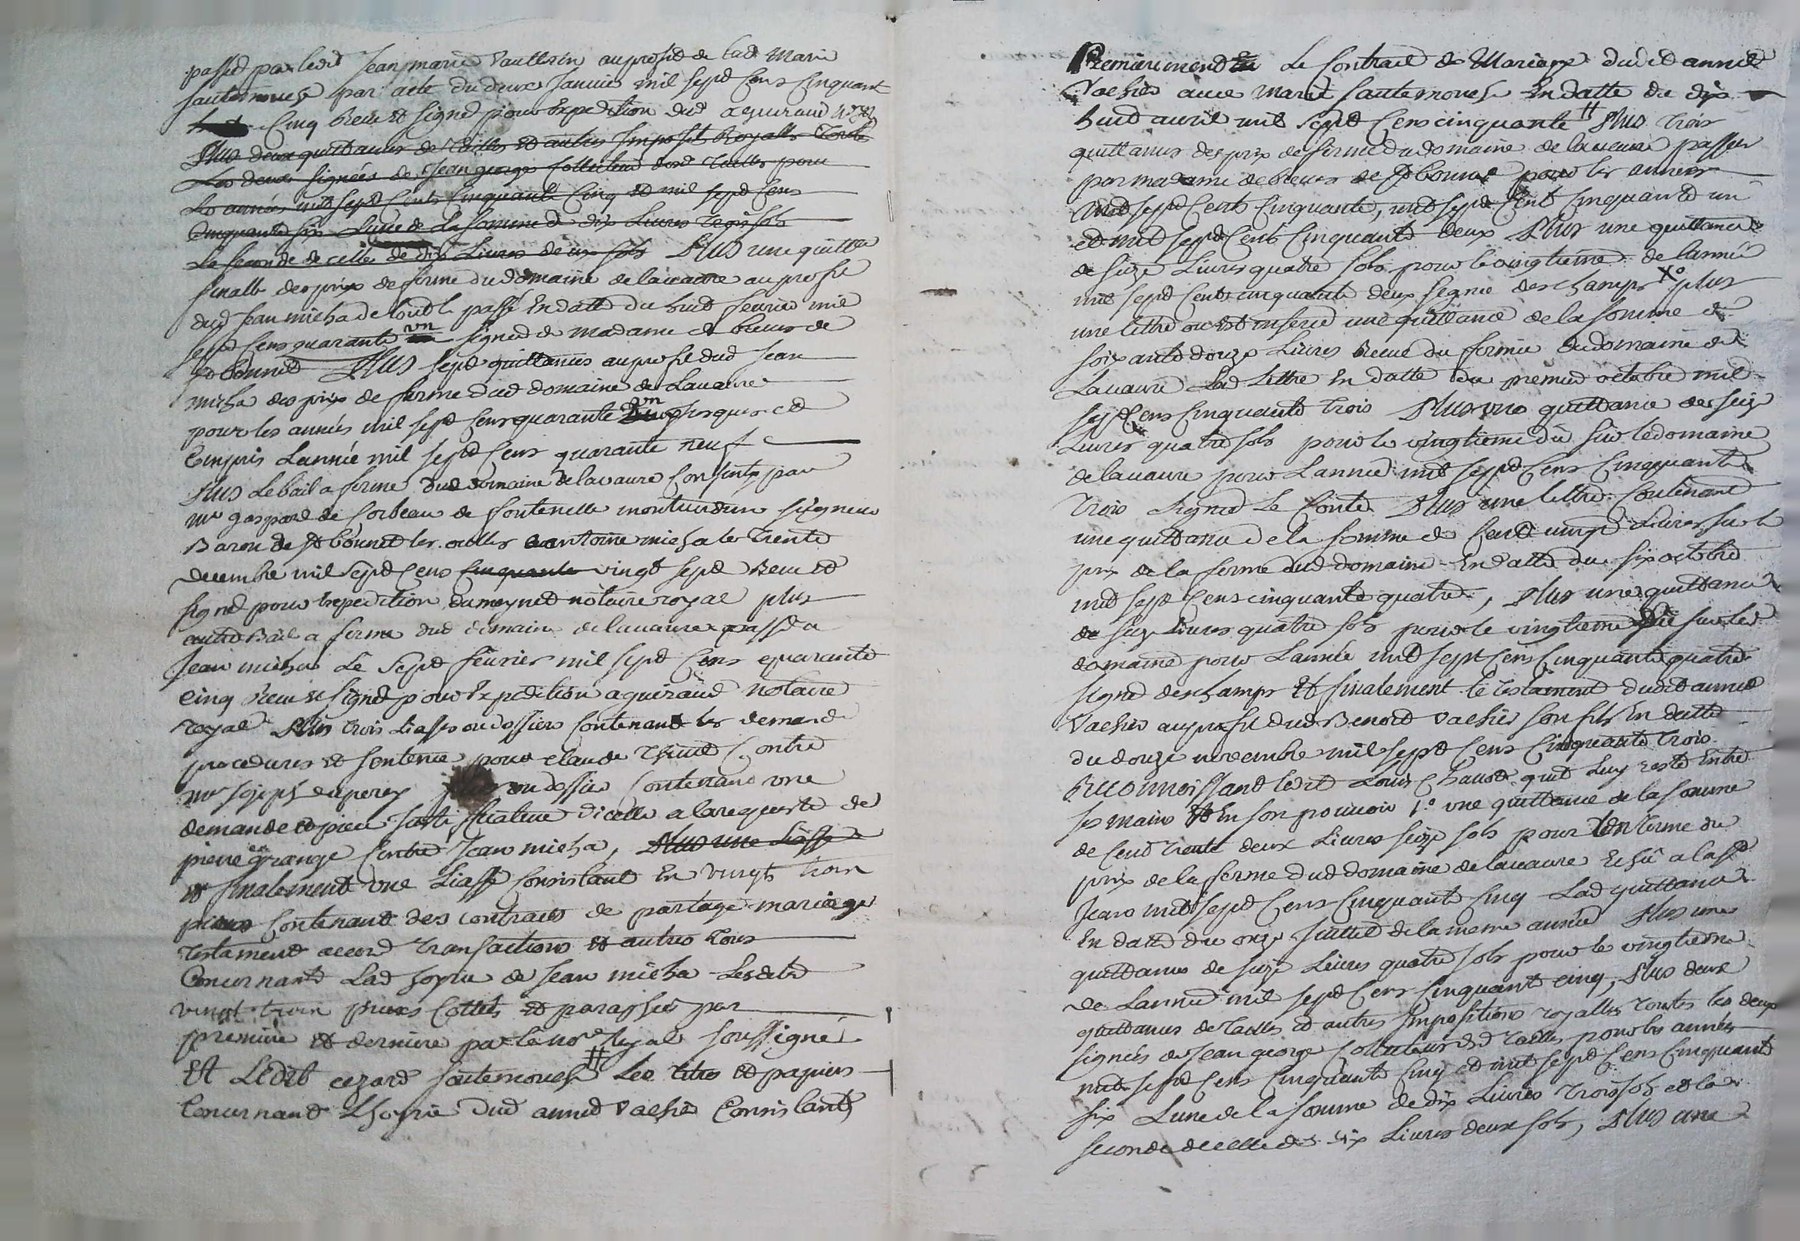 passé par ledit Jean marie Vaultrin au profit de lad Marie
Sauternouse par acte du deux Janvier mil sept cens cinquante
cinq Receu et signé pour Expedition dud aguiraud
Plus deux quittances de tailles et autres Impots Royalle toute
Les deux signées de Jean george collecteur desd tailles pour
Les années mil sept cents cinquante cinq et mil sept cens
cinquante six Lune de la somme de dix Livres trois sols
La seconde de celle de dix Livres deux sols Plus une quittce
finalle des prix de ferme du domaine de lavaure au profit
dud Jean micha passé En datte du huit fevrier mil
sept cens quarante un signé de madame de
St bonnet Plus sept quittances au profit dud Jean
micha des prix de ferme dud domaine de Lavaure
pour les années mil sept cens quarante un jusques et
Compris Lannée mil sept cens quarante neuf
Plus Le bail a ferme dud domaine de lavaure Consenty par
mr gaspard de sorbeau de fontenelle seigneur
Baron de st bonnet les oulles a antoine micha le trente
decembre mil sept cens cinquante vingt sept Receu et
signé pour Expedition dumeynet notaire royal plus
autre Bail a ferme dud domaine de lavaure passé a
Jean micha Le sept fevrier mil sept cens quarante
cinq Receu et signé pour Expedition aguiraud notaire
royal Plus trois Liasses ou dossiers Contenant les demande
procedures et sentence pour claude Contre
mr Joseph duperey ou dossier Contenant une
demande et piece justificative dicelle a la requeste de
pierre grange Contre Jean micha, Plus une Liasse
et finalement une Liasse Consistant En vingt trois
pieces Contenant des contracts de partage mariage
testament accord transactions et autres tous
Concernant Lad hoyrie de Jean micha Lesdites
vingt trois pieces Cottés et paraphés par
premiere et derniere par le nore Royal soussigné
Et Ledit cezard sauternouse Les titres et papiers
Concernant Lhoyrie dud annet Vachié Consistants
Premierement Le Contract de Mariage dudit annet
Vachié avec Marie Sauternouse En datte du dix
huit avril mil sept cens cinquante Plus trois
quittances des prix de ferme du domaine de lavaure passes
par madame de de St bonnet pour les années
mil sept cent cinquante, mil sept cent cinquante un
et mil sept cens cinquante deux Plus une quittance
de seize Livres quatre sols pour le vingtieme de lannée
mil sept cent cinquante deux signé deschamps Xo plus
une lettre ou est inseré une quittance de la somme de
soixante douze Livres Receue du fermier du domaine de
Lavaure Lad Lettre En datte du premier octobre mil
sept cens cinquante trois Plus une quittance de seize
Livres quatre sols pour le vingtieme du sur le domaine
de lavaure pour Lannée mil sept cens cinquante
trois signé Le Conte Plus une lettre Contenant
une quittance de la somme de cent vingt Livres sur le
prix de la ferme dud domaine En datte du six octobre
mil sept cens cinquante quatre, Plus une quittance
de seize Livres quatre sols pour le vingtieme du sur led
domaine pour Lannée mil sept cens cinquante quatre
signé deschamps Et finalement le testament dudit annet
Vachié au profit dud Benoit Vachié son fils En datte
du douze novembre mil sept cens cinquante trois
Reconnoissant ledit Louis Chausse quil Luy reste Entre
ses mains Et En son pouvoir 1o une quittance de la somme
de cent trente deux Livres seize sols pour un terme du
prix de la ferme dud domaine de lavaure Echû a la st
Jean mil sept cens cinquante cinq Lad quittance
En datte du onze juillet de la meme année Plus une
quittance de seize Livres quatre sols pour le vingtieme
de Lannée mil sept cens cinquante cinq, Plus deux
quittances de tailles et autres Impositions royalles toutes les deux
signées de Jean george Collecteur desd tailles pour les années
mil sept cens cinquante cinq et mil sept cens cinquante
six Lune de la somme de dix Livres trois sols et la
seconde de celle de dix Livres deux sols, Plus une